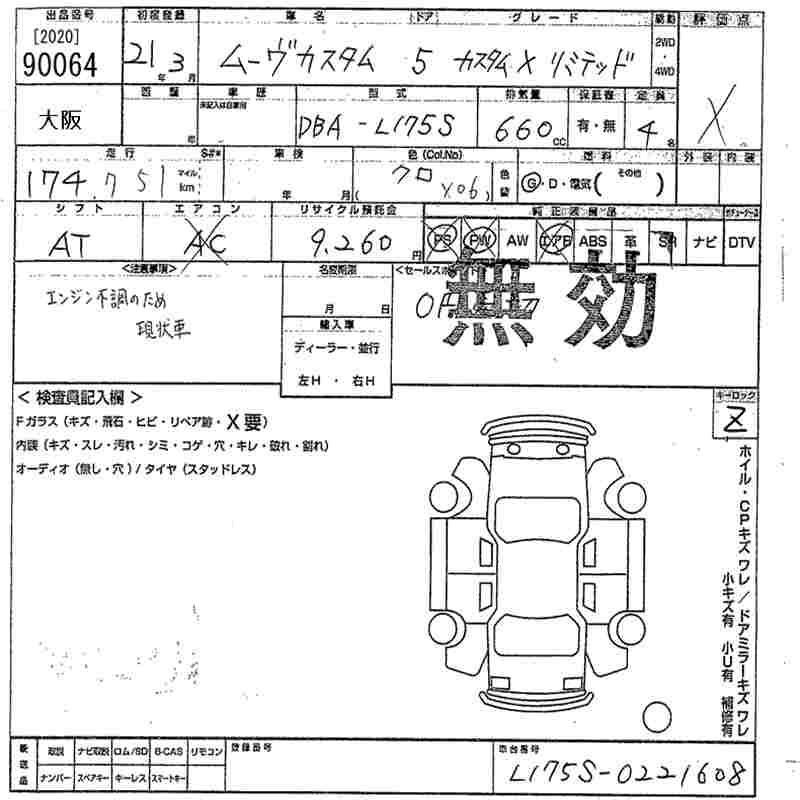 出品番号 初度登録 車名 ドア グレード 駆動 評価点
[2020]
90064 21年3月 ムーヴカスタム 5 カスタムX リミテッド 2WD・4WD X
車歴 型式 排気量 定員
大阪 DBA-L175S 660cc 有・無 4名
走行 車検 色(Col.No) 燃料 外装 内装
174,751 マイル km 年 月 クロ X06 色替 G・D・電気( その他 )
シフト エアコン リサイクル預託金 純正装備品
AT AC 9,260円 PS PW AW エアB ABS 革 SR ナビ DTV
<注意事項> 名変期限 <セールスポイント>
エンジン不調のため
現状車
月 日
無効
輸入車
ディーラー・並行
左H ・ 右H
<検査員記入欄> キーロック
Fガラス(キズ・飛石・ヒビ・リペア跡・X要) Z
内装(キズ・スレ・汚れ・シミ・コゲ・穴・キレ・破れ・割れ)
オーディオ(無し・穴)/タイヤ(スタッドレス)
ホイル・CPキズワレ/ドアミラーキズワレ
小キズ有 小U有 補修有
後送品 取説 ナビ取説 ロム/SD B-CAS リモコン 登録番号 車台番号
ナンバー スペアキー キーレス スマートキー L175S-0221608